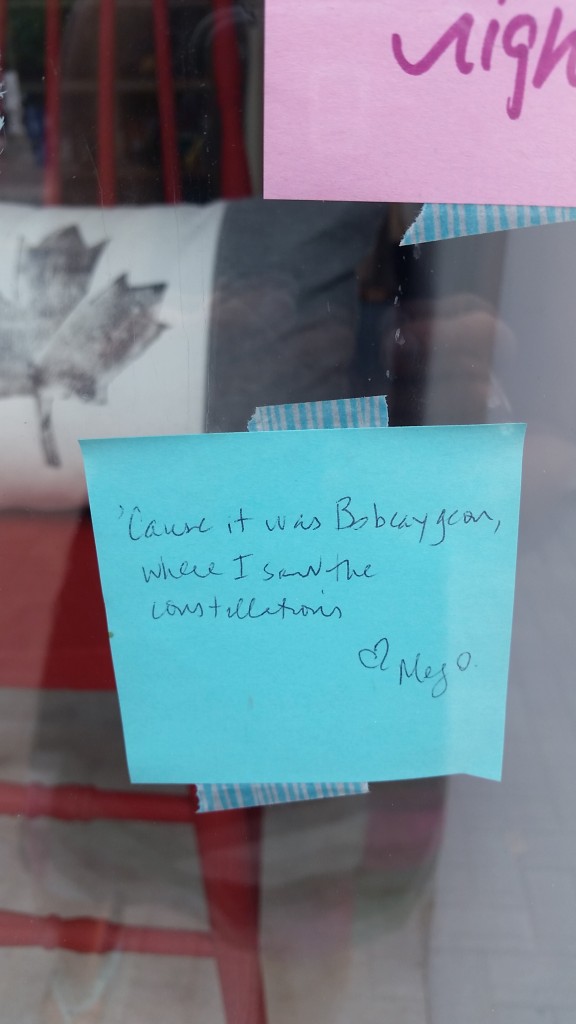 'Cause it was Bobcaygeon,
where I saw the
constellations
♡ Meg O.